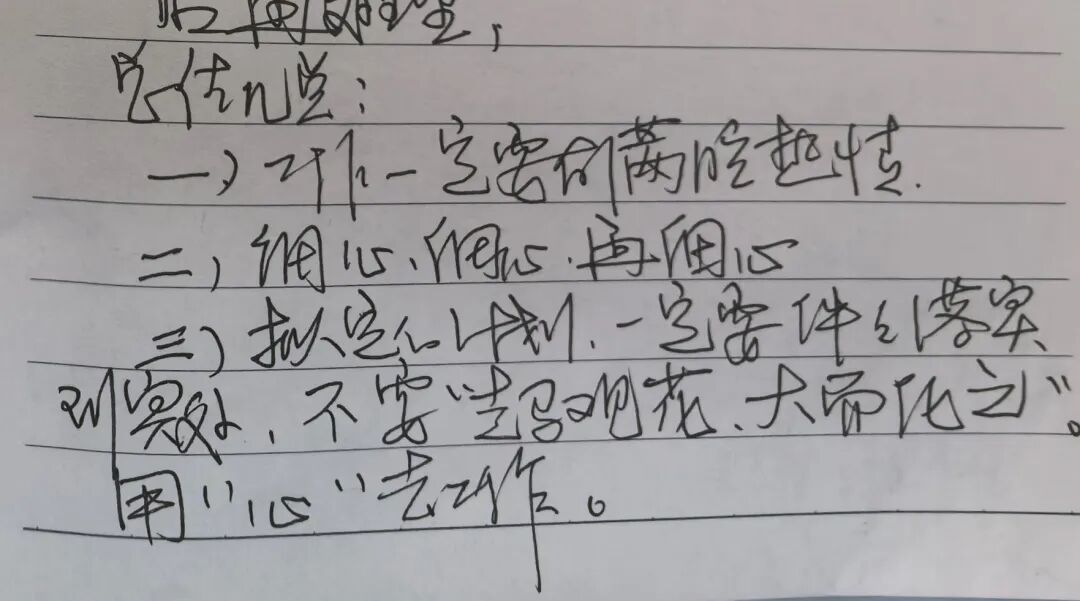 总结几点：
一、工作一定要有满腔热情.
二、细心、细心.再细心
三、拟定计划.一定要件件落实
到实处，不要“走马观花、大而化之”。
用“心”去工作。